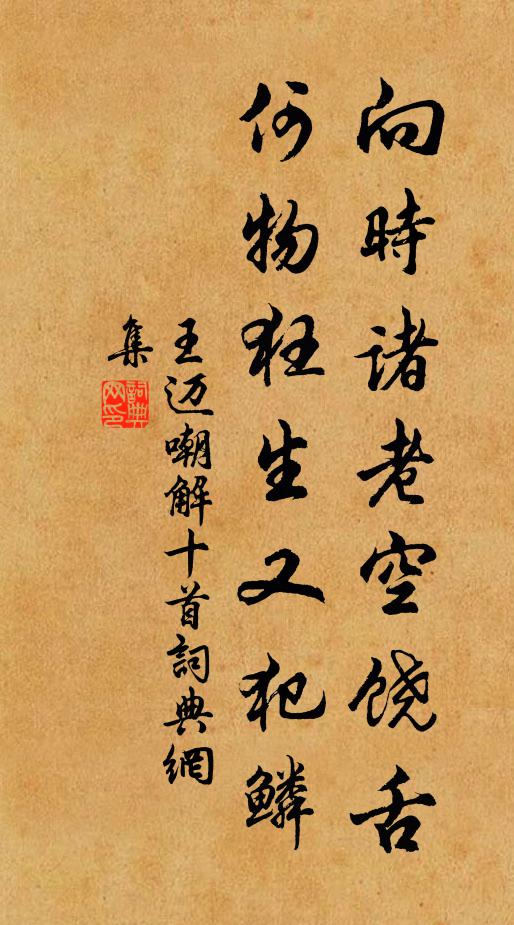 向時诸老空饶舌
何物狂生又犯鳞
王迈嘲解十首詞典網
集
詞典网印